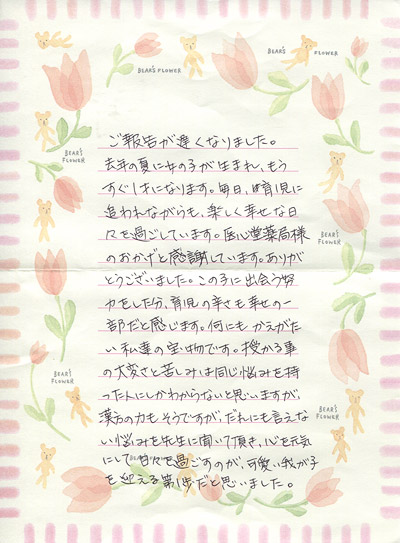 BEAR'S FLOWER
BEAR'S FLOWER
BEAR'S FLOWER
BEAR'S FLOWER
ご報告が遅くなりました。
去年の夏に女の子が生まれ、もう
すぐ1才になります。毎日、育児に
追われながらも、楽しく幸せな日
々を過ごしています。医心堂薬局様
のおかげと感謝しています。ありが
とうございました。この子に出会う努
力をした分、育児の辛さも幸せの一
部だと感じます。何にもかえがた
い私達の宝物です。授かる事
の大変さと苦しみは同じ悩みを持
った人にしかわからないと思いますが、
漢方の力もそうですが、だれにも言えな
い悩みを先生に聞いて頂き、心を元気
にして日々を過ごすのが、可愛い我が子
を迎える第1歩だと思いました。
BEAR'S FLOWER
BEAR'S FLOWER
BEAR'S FLOWER
BEAR'S FLOWER